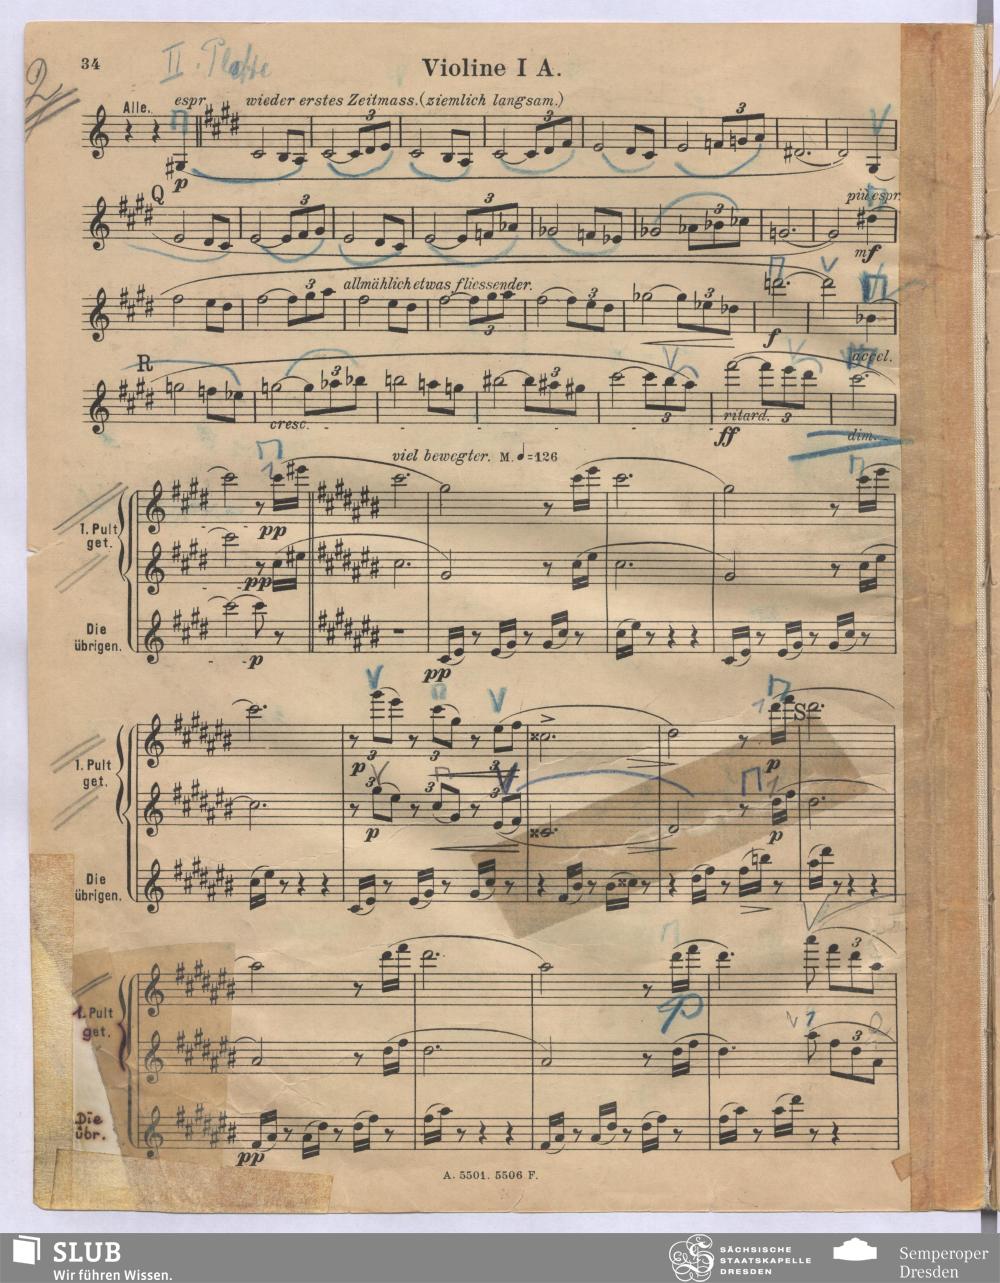 34
II. Platte
Violine I A.
2
Alle.
espr.
wieder erstes Zeitmass. (ziemlich langsam.)
3 3 3
p
Q
più espr.
3 3 3
mf
allmählich etwas fliessender.
3 3 3 3
f
R
accel.
3 3 3 3
cresc.
ritard.
ff
dim.
viel bewegter. M. ♩=126
1. Pult
get.
pp
ppp
Die
übrigen.
p
pp
S
1. Pult
get.
3 3 3
p
p
3 3 3
p
p
Die
übrigen.
1. Pult
get.
3
p
3
Die
übr.
pp
A. 5501. 5506 F.
SLUB
Wir führen Wissen.
SÄCHSISCHE
STAATSKAPELLE
DRESDEN
Semperoper
Dresden